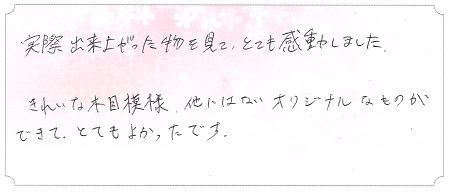 実際出来上がった物を見て、とても感動しました。
きれいな木目模様、他にはないオリジナルなものが
できて、とてもよかったです。